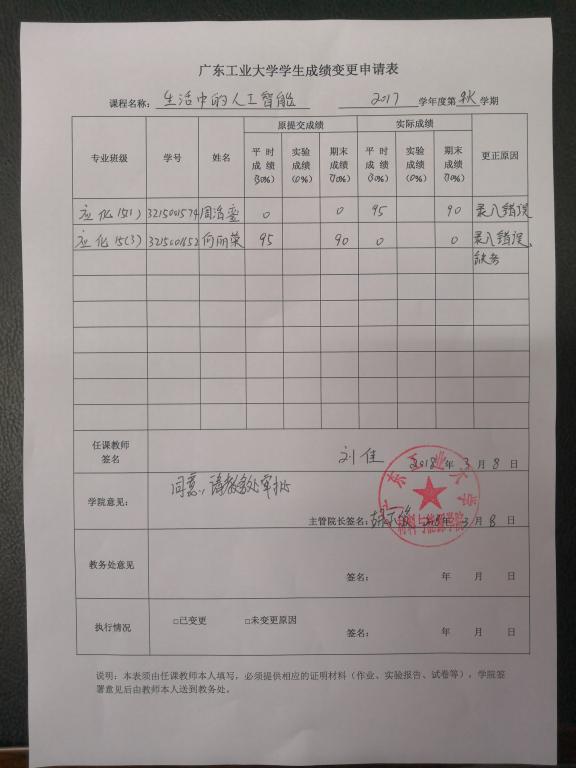 广东工业大学学生成绩变更申请表
课程名称： 生活中的人工智能 2017 学年度第 秋 学期
原提交成绩 实际成绩
专业班级 学号 姓名 平时成绩(30%) 实验成绩(0%) 期末成绩(70%) 平时成绩(30%) 实验成绩(0%) 期末成绩(70%) 更正原因
应化15(1) 3215001574 0 0 95 90 录入错误
应化15(3) 3215001652 向丽荣 95 90 0 0 录入错误、
缺考
任课教师
签名 刘佳 2018 年 3 月 8 日
学院意见： 同意，请教务处审批
主管院长签名： 年 3 月 8 日
广东工业大学
材料与能源学院
教务处意见
签名： 年 月 日
执行情况 □已变更 □未变更原因
签名： 年 月 日
说明：本表须由任课教师本人填写，必须提供相应的证明材料（作业、实验报告、试卷等），学院签
署意见后由教师本人送到教务处。